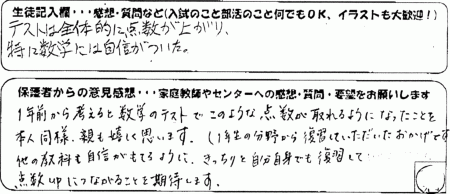 生徒記入欄・・・感想・質問など(入試のこと部活のこと何でもOK、イラストも大歓迎！)
テストは全体的に点数が上がり、
特に数学には自信がついた。
保護者からの意見感想・・・家庭教師やセンターへの感想・質問・要望をお願いします
1年前から考えると数学のテストでこのような点数が取れるようになったことを
本人同様、親も嬉しく思います。(1年生の分野から復習していただいたおかげです
他の教科も自信がもてるように、きっちりと自分自身でも復習して
点数UPにつながることを期待します。